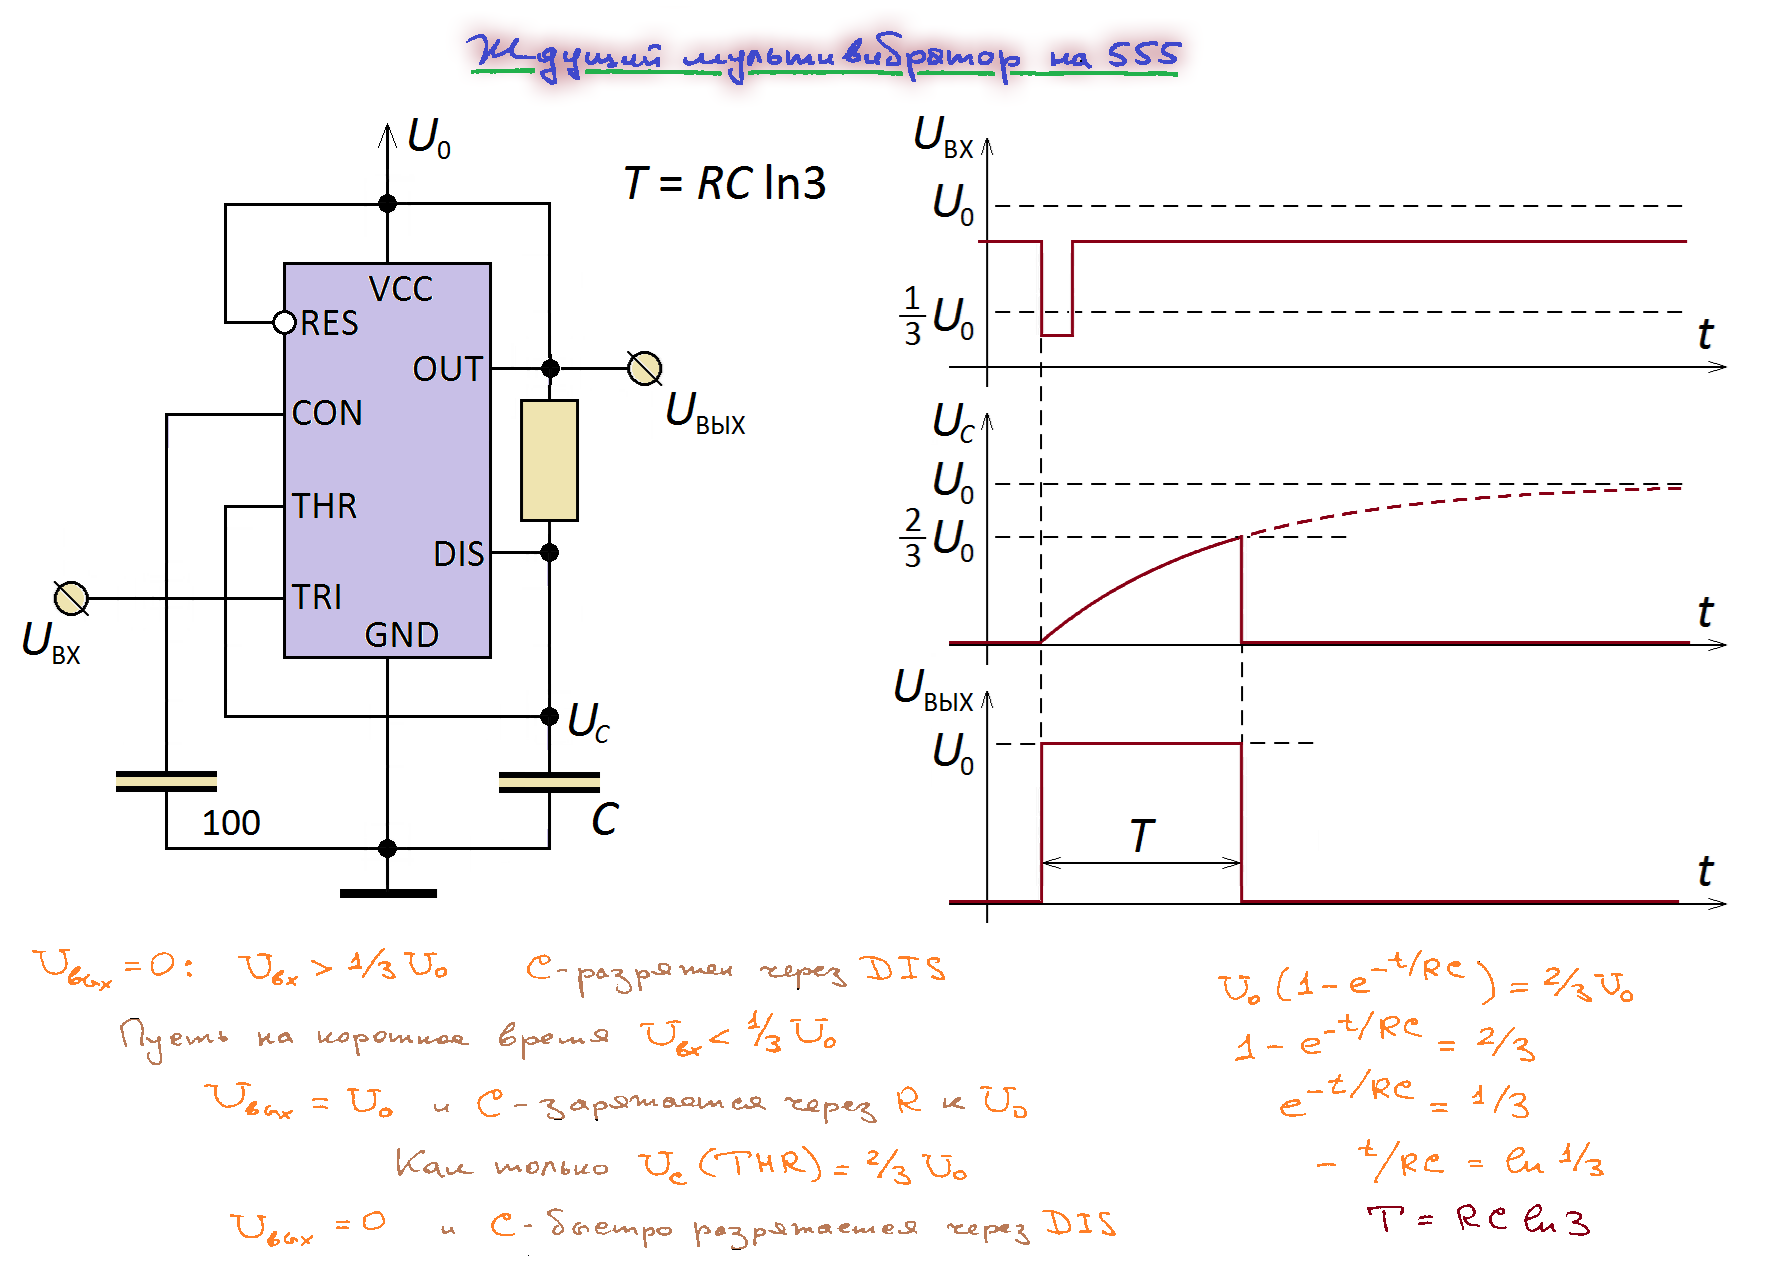 Ждущий мультивибратор на 555
U₀
T = RC ln3
VCC
RES
OUT
CON
THR
DIS
TRI
GND
Uвых
Uвх
U_C
100
C
Uвх
U₀
1/3 U₀
t
U_C
U₀
2/3 U₀
t
Uвых
U₀
T
t
Uвых = 0: Uвх > 1/3 U₀ C-разряжен через DIS
Пусть на короткое время Uвх < 1/3 U₀
Uвых = U₀ и C-заряжается через R к U₀
Как только Uc (THR) = 2/3 U₀
Uвых = 0 и C-быстро разряжается через DIS
U₀ (1 - e^(-t/RC)) = 2/3 U₀
1 - e^(-t/RC) = 2/3
e^(-t/RC) = 1/3
- t/RC = ln 1/3
T = RC ln 3